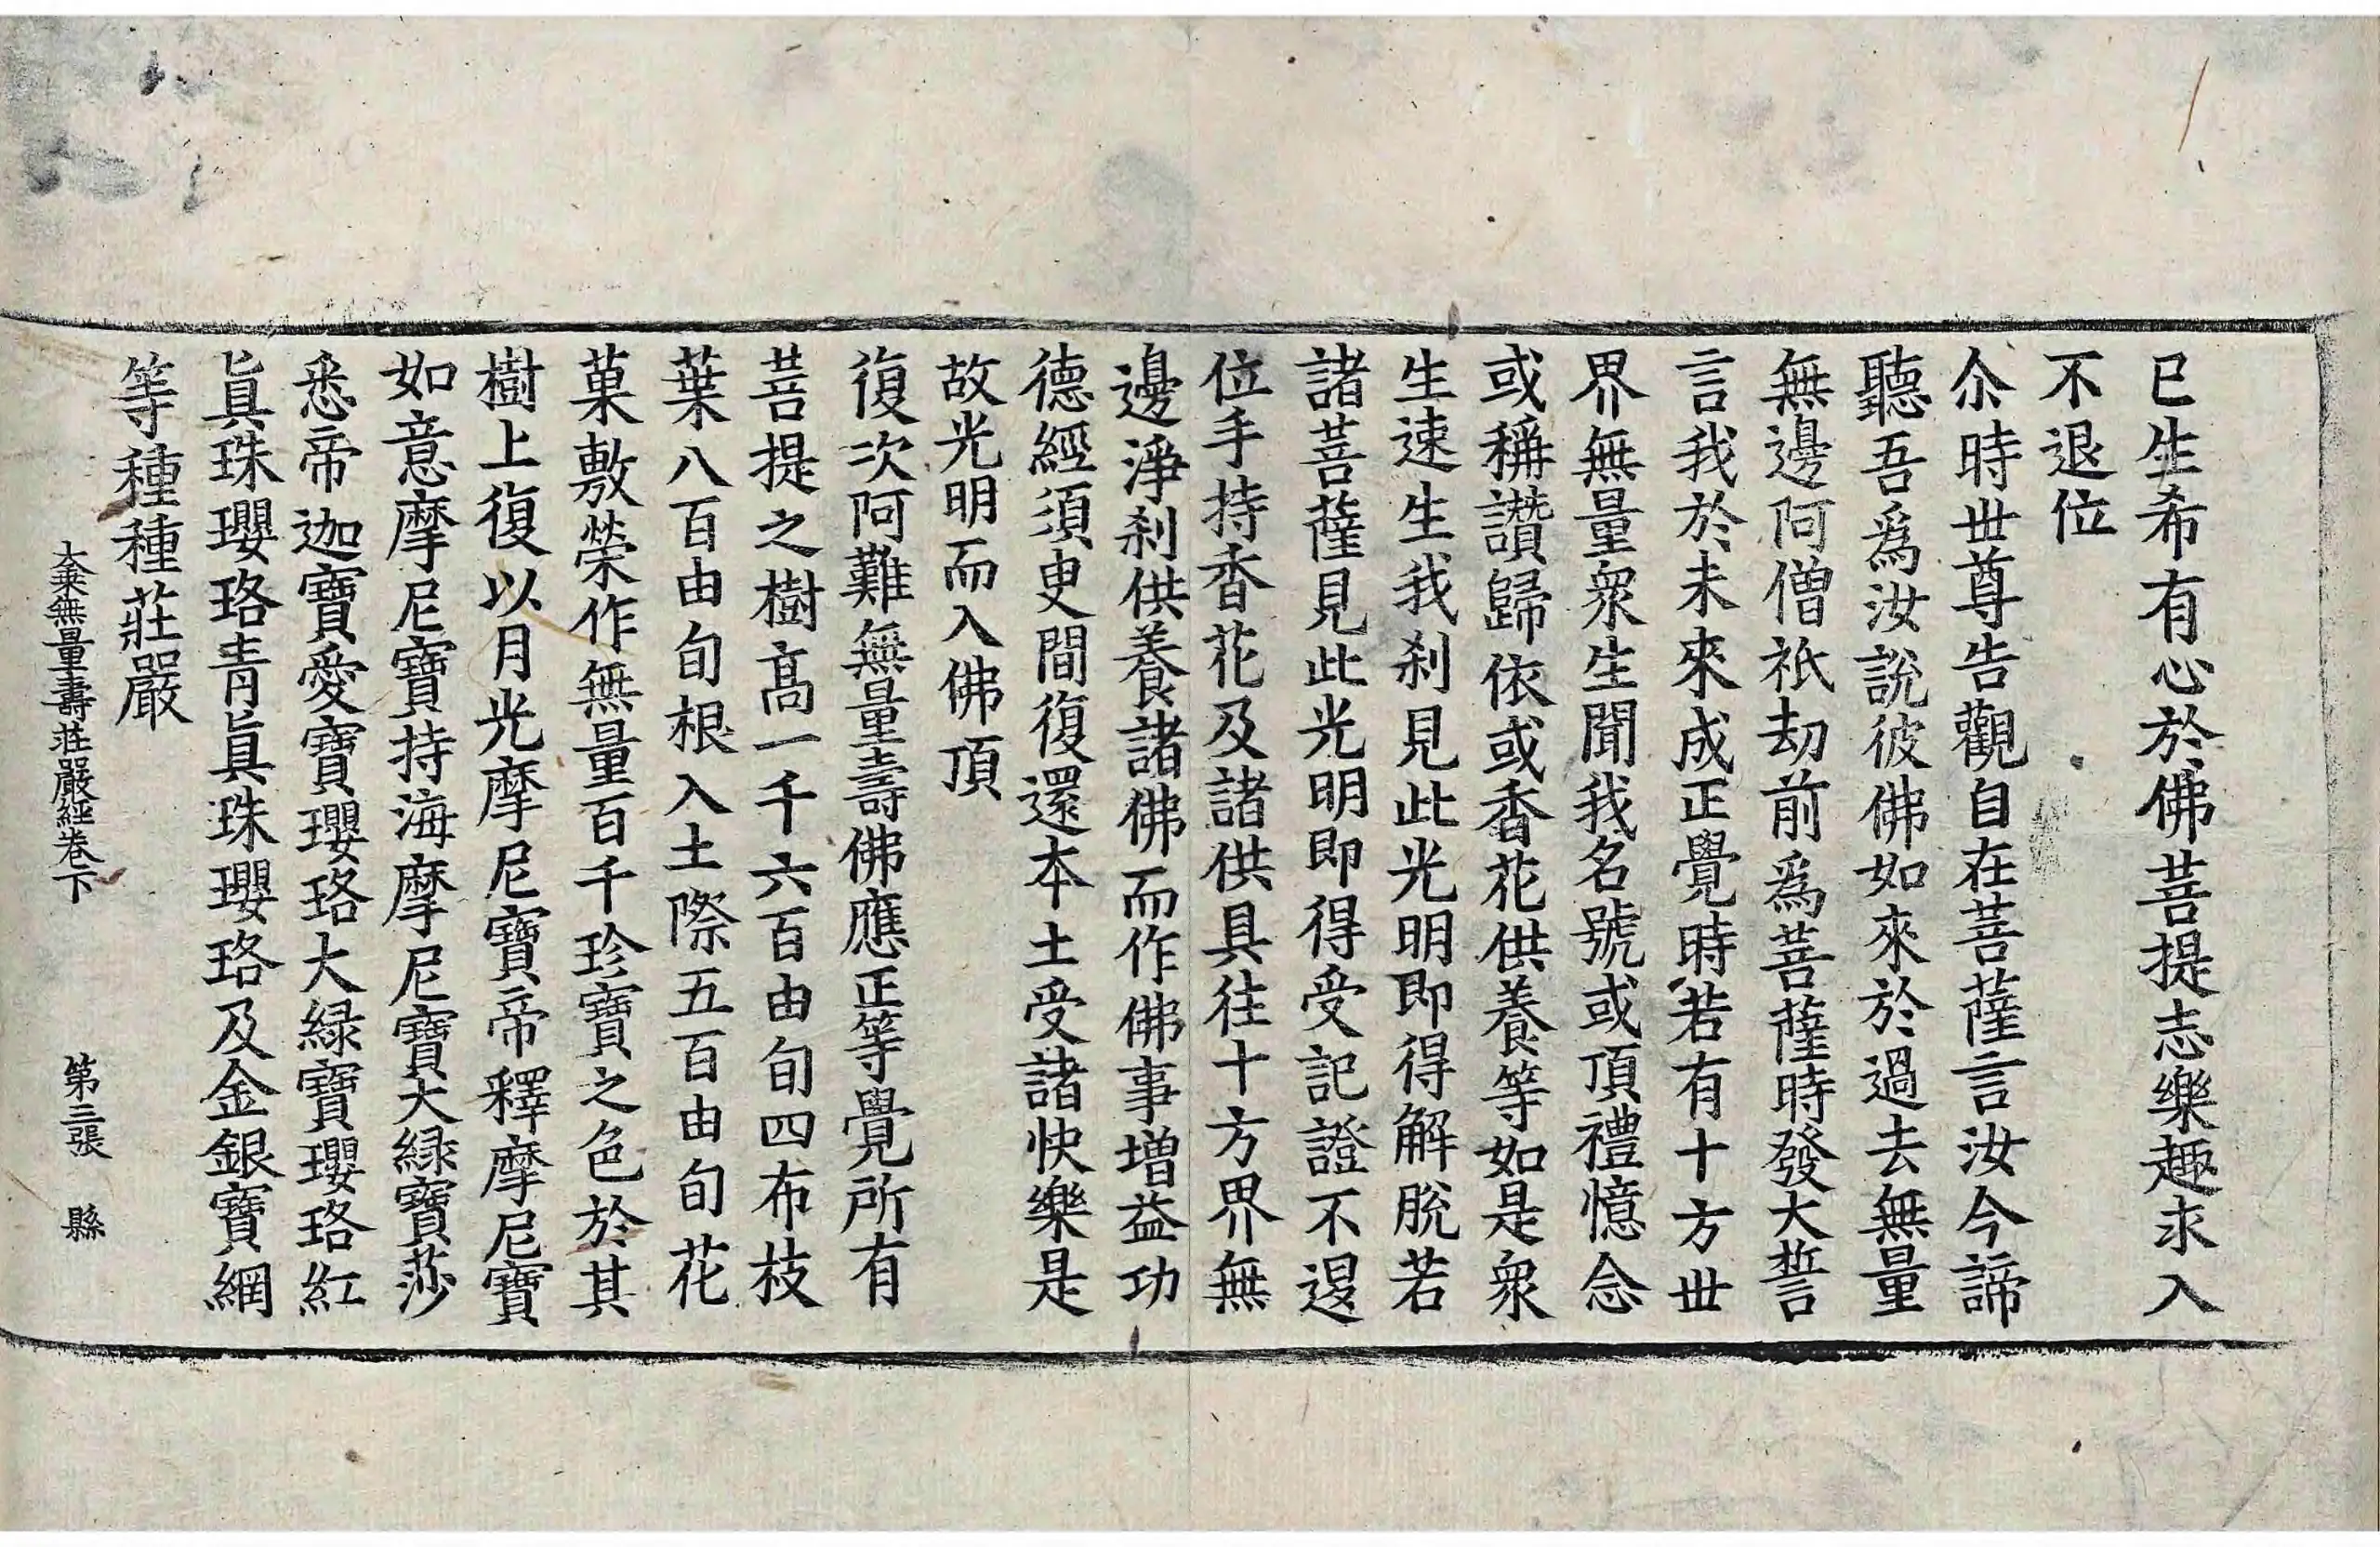 已生希有心於佛菩提志樂趣求入
不退位
尒時世尊告觀自在菩薩言汝今諦
聽吾爲汝說彼佛如來於過去無量
無邊阿僧祇劫前爲菩薩時發大誓
言我於未來成正覺時若有十方世
界無量衆生聞我名號或頂禮憶念
或稱讚歸依或香花供養等如是衆
生速生我刹見此光明即得解脫若
諸菩薩見此光明即得受記證不退
位手持香花及諸供具往十方界無
邊淨刹供養諸佛而作佛事增益功
德經須臾間復還本土受諸快樂是
故光明而入佛頂
復次阿難無量壽佛應正等覺所有
菩提之樹高一千六百由旬四布枝
葉八百由旬根入土際五百由旬花
菓敷榮作無量百千珍寶之色於其
樹上復以月光摩尼寶帝釋摩尼寶
如意摩尼寶持海摩尼寶大綠寶莎
悉帝迦寶愛寶瓔珞大綠寶瓔珞紅
眞珠瓔珞青眞珠瓔珞及金銀寶網
等種種莊嚴
大乘無量壽莊嚴經卷下 第三張 縣